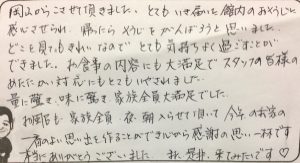 岡山からこさせて頂きました。とてもいき届いた館内のおそうじと
感じさせられ、帰ったらそうじをがんばろうと思いました。
どこを見てもきれいなのでとても気持ちよく過ごすことが
できました。お食事の内容にも大満足でスタッフの皆様の
あたたかい対応にもとてもいやされました。
量に驚き、味に驚き、家族全員大満足でした。
お風呂も、家族全員、夜、朝入らせて頂いて今年のお宿の
一番のよい思い出を作ることができたから感謝の思い一杯です
本当にありがとうございました。また、是非、来てみたいです♡